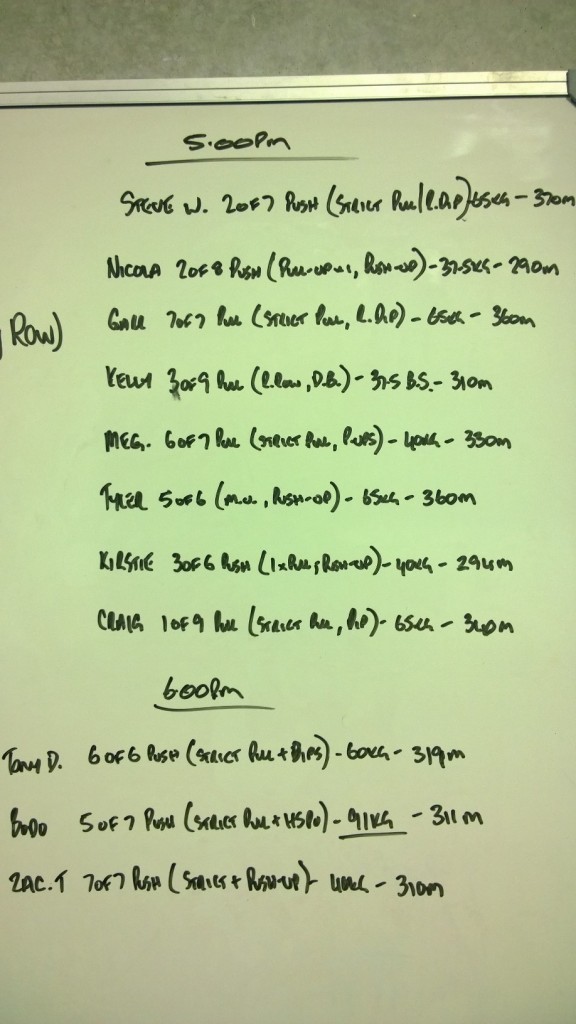 5:00Pm
STEVE W. 2 OF 7 PUSH (STRICT PULL/R.DIP) 65KG - 370m
NICOLA 2 OF 8 PUSH (PULL-UP, PUSH-UP) - 37.5KG - 290m
Row)
7 OF 7 PULL (STRICT PULL, R.DIP) - 65KG - 360m
KELLY 3 OF 9 PULL (R.ROW, D.B.) - 37.5 B.S. - 310m
MEG. 6 OF 7 PULL (STRICT PULL, P-UPS) - 40KG - 330m
TYLER 5 OF 6 (M.U., PUSH-UP) - 65KG - 360m
KIRSTIE 3 OF 6 PUSH (1xPULL, PUSH-UP) - 40KG - 294m
CRAIG 1 OF 9 PULL (STRICT PULL, DIP) - 65KG - 340m
6:00Pm
TONY D. 6 OF 6 PUSH (STRICT PULL + DIPS) - 60KG - 319m
BODO 5 OF 7 PUSH (STRICT PULL + HSPU) - 91KG - 311m
ZAC.T 7 OF 7 PUSH (STRICT + PUSH-UP) - 40KG - 310m